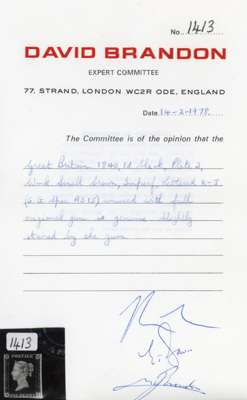 No. 1413
DAVID BRANDON
EXPERT COMMITTEE
77, STRAND, LONDON WC2R ODE, ENGLAND
Date 14-2-1978
The Committee is of the opinion that the
Great Britain 1840, 1d Black, Plate 2,
Wmk Small Crown, Imperf, lettered K-I
(S.G. Spec AS15) unused with full
original gum is genuine slightly
stained by the gum
1413
POSTAGE
ONE PENNY